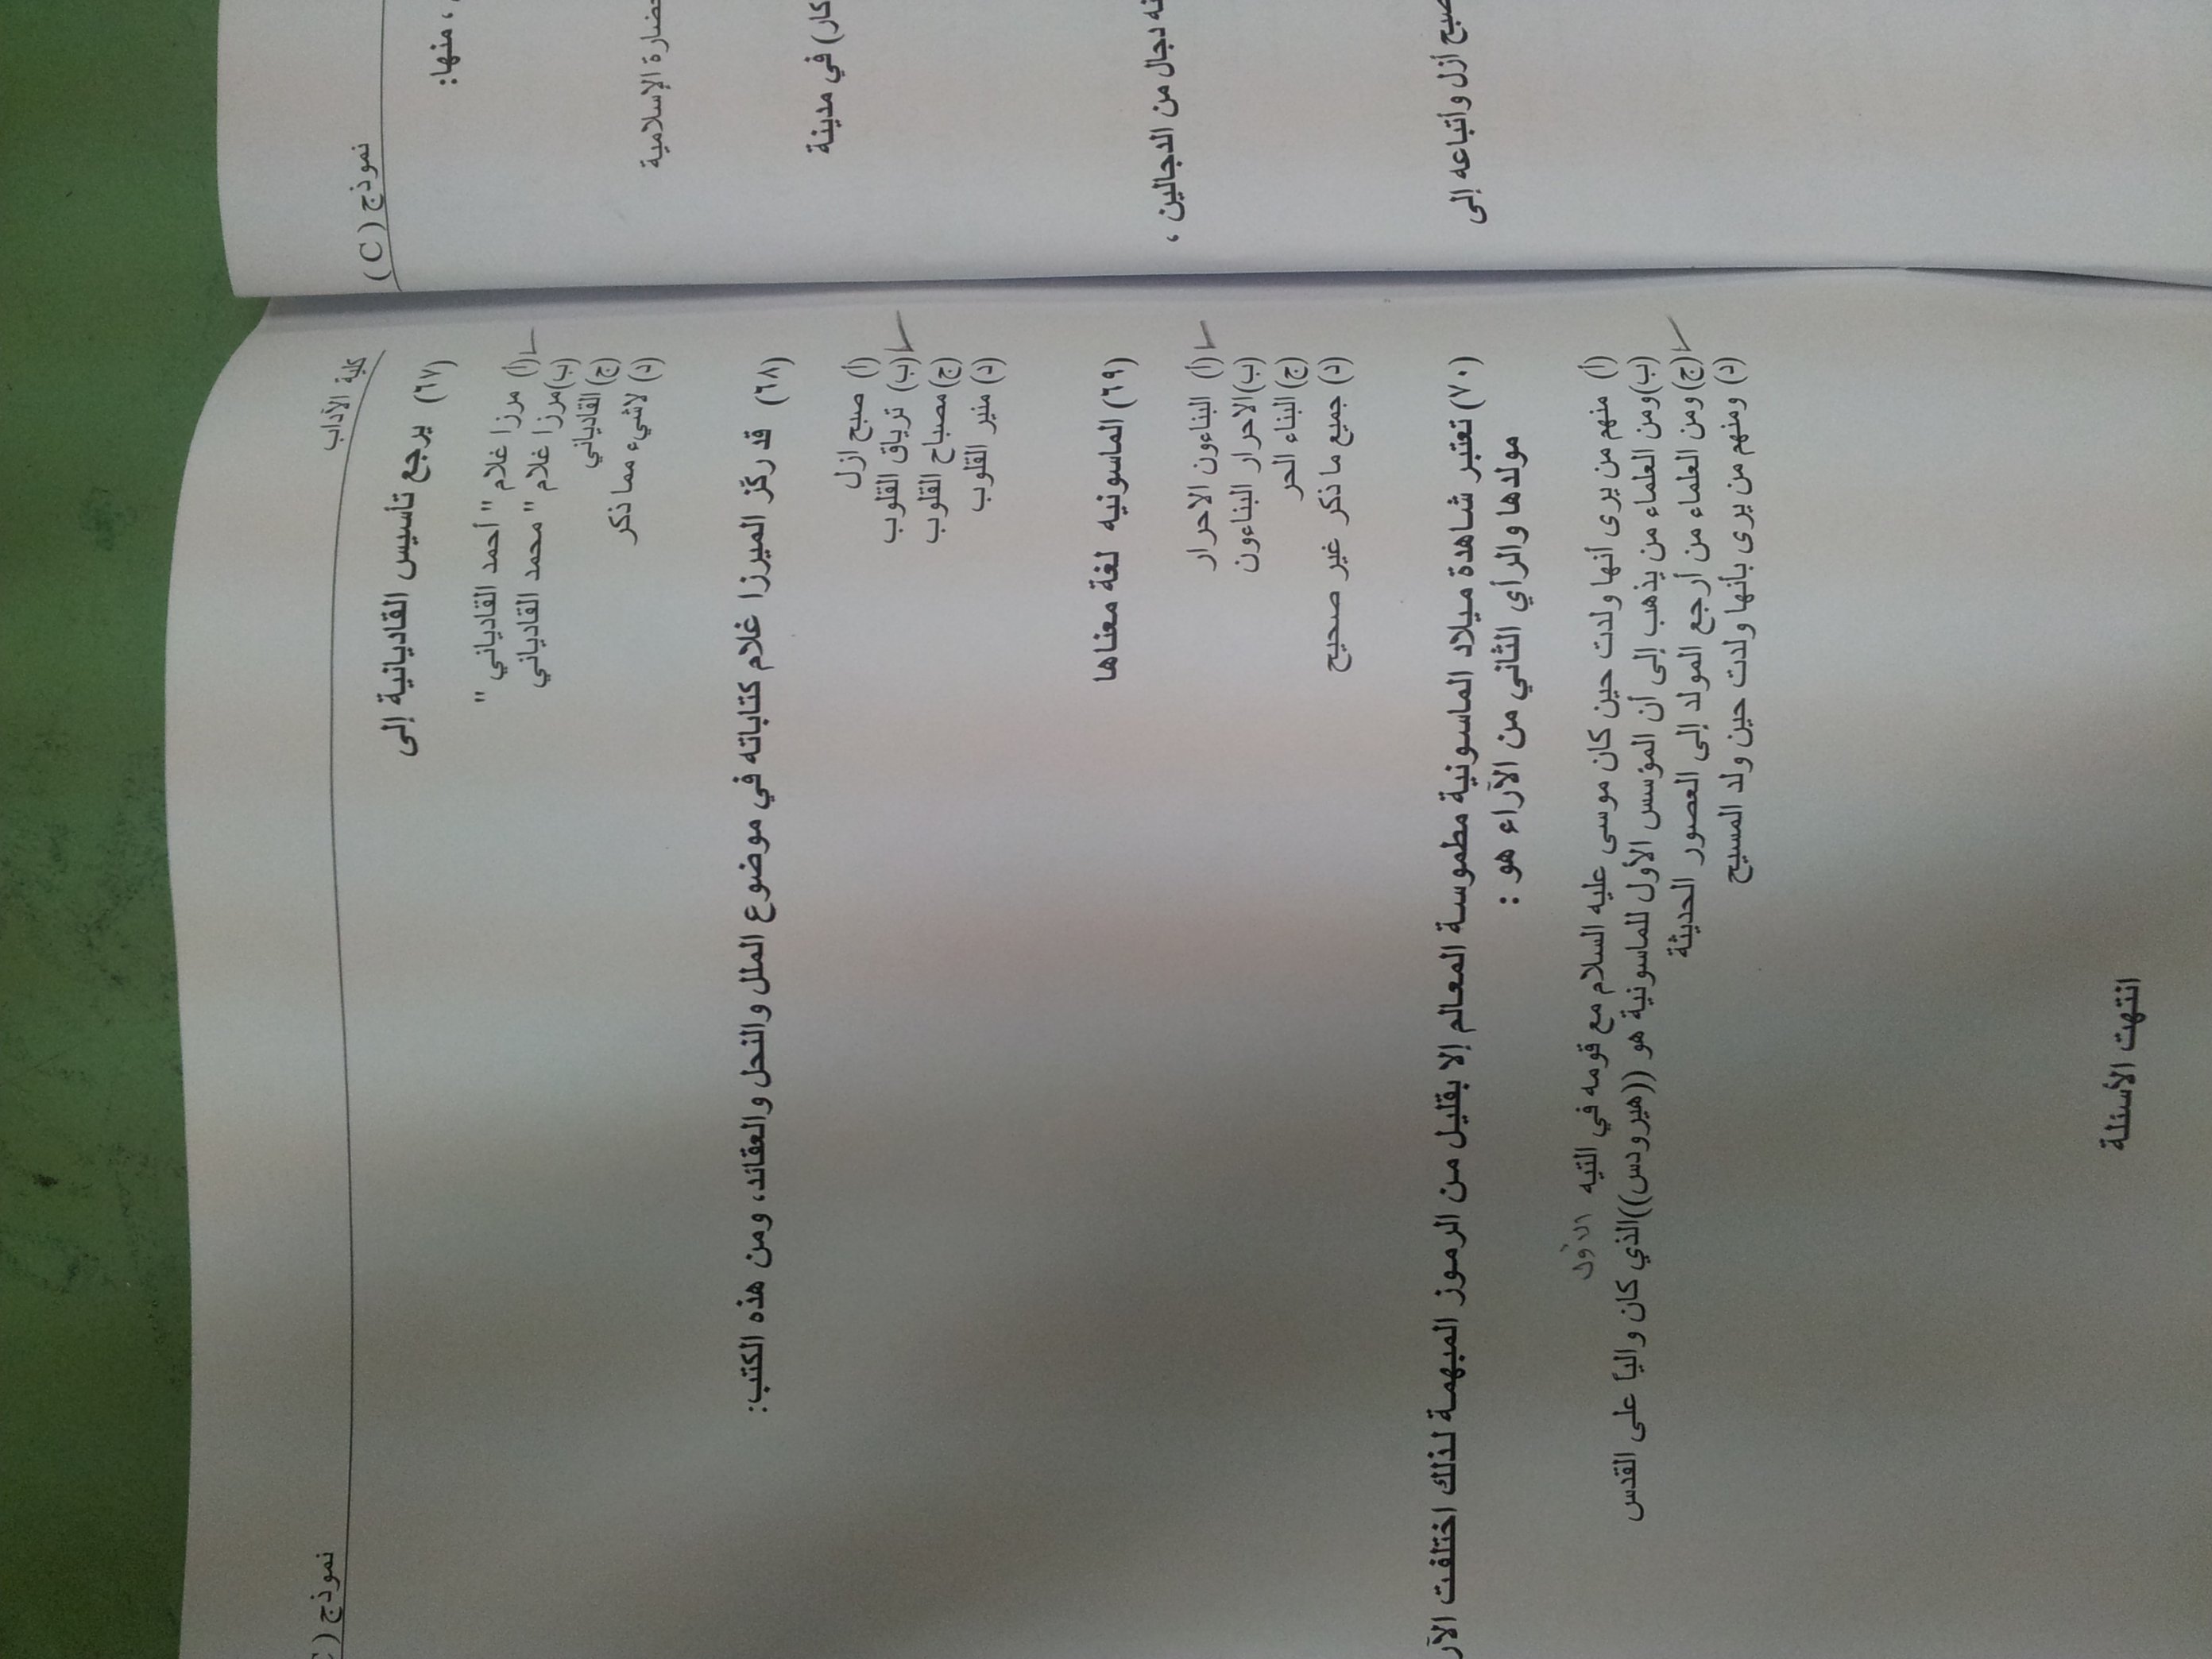 كلية الآداب
نموذج (
(٦٧) يرجع تأسيس القاديانية إلى
(أ) مرزا غلام " أحمد القادياني "
(ب)مرزا غلام " محمد القادياني
(ج) القادياني
(د) لاشيء مما ذكر
(٦٨) قد ركّز الميرزا غلام كتاباته في موضوع الملل والنحل والعقائد، ومن هذه الكتب:
(أ) صبح ازل
(ب) ترياق القلوب
(ج) مصباح القلوب
(د) منير القلوب
(٦٩) الماسونيه لغة معناها
(أ) البناءون الاحرار
(ب)الاحرار البناءون
(ج) البناء الحر
(د) جميع ما ذكر غير صحيح
(٧٠) تعتبر شاهدة ميلاد الماسونية مطموسة المعالم إلا بقليل من الرموز المبهمة لذلك اختلفت الآر
مولدها والرأي الثاني من الآراء هو :
(أ) منهم من يرى أنها ولدت حين كان موسى عليه السلام مع قومه في التيه الأول
(ب)ومن العلماء من يذهب إلى أن المؤسس الأول للماسونية هو ((هيرودس))الذي كان والياً على القدس
(ج)ومن العلماء من أرجع المولد إلى العصور الحديثة
(د) ومنهم من يرى بأنها ولدت حين ولد المسيح
انتهت الأسئلة
نموذج ( C )
، منها:
ضارة الإسلامية
كار) في مدينة
نه دجال من الدجالين ،
صبح أزل وأتباعه إلى